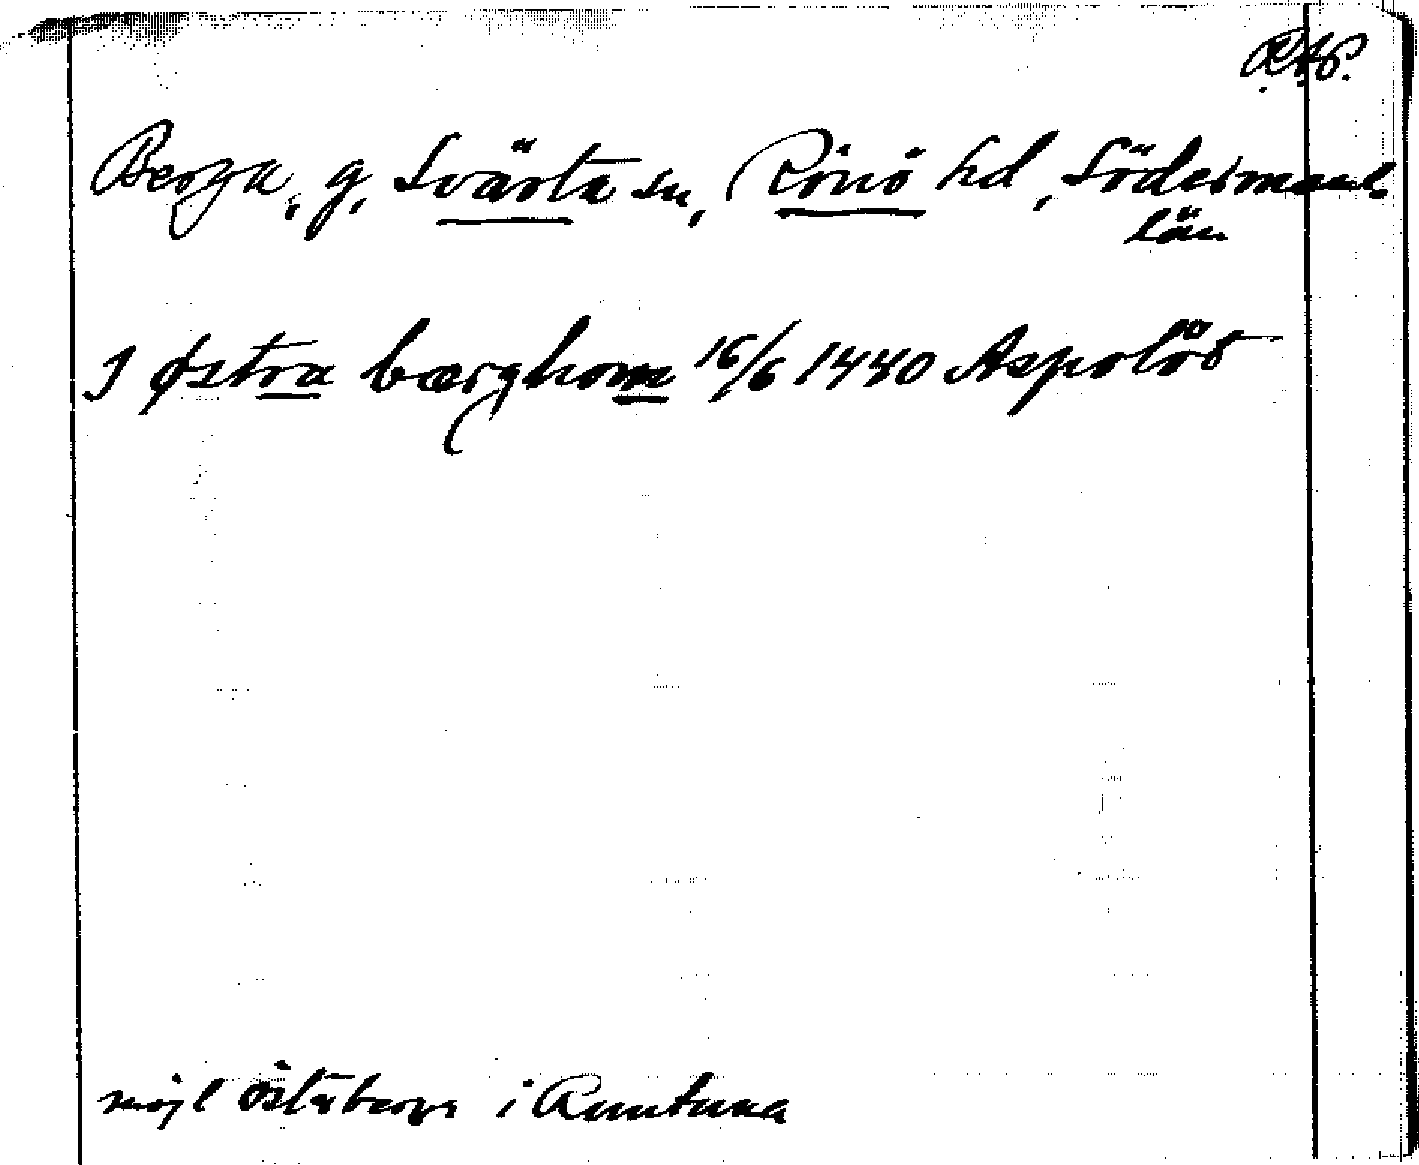 Berga, g, Svärta sn, Rönö hd, Södermanl
län
I østra bærghom 16/6 1440 Aspolöt
möjl Österberga i Runtuna